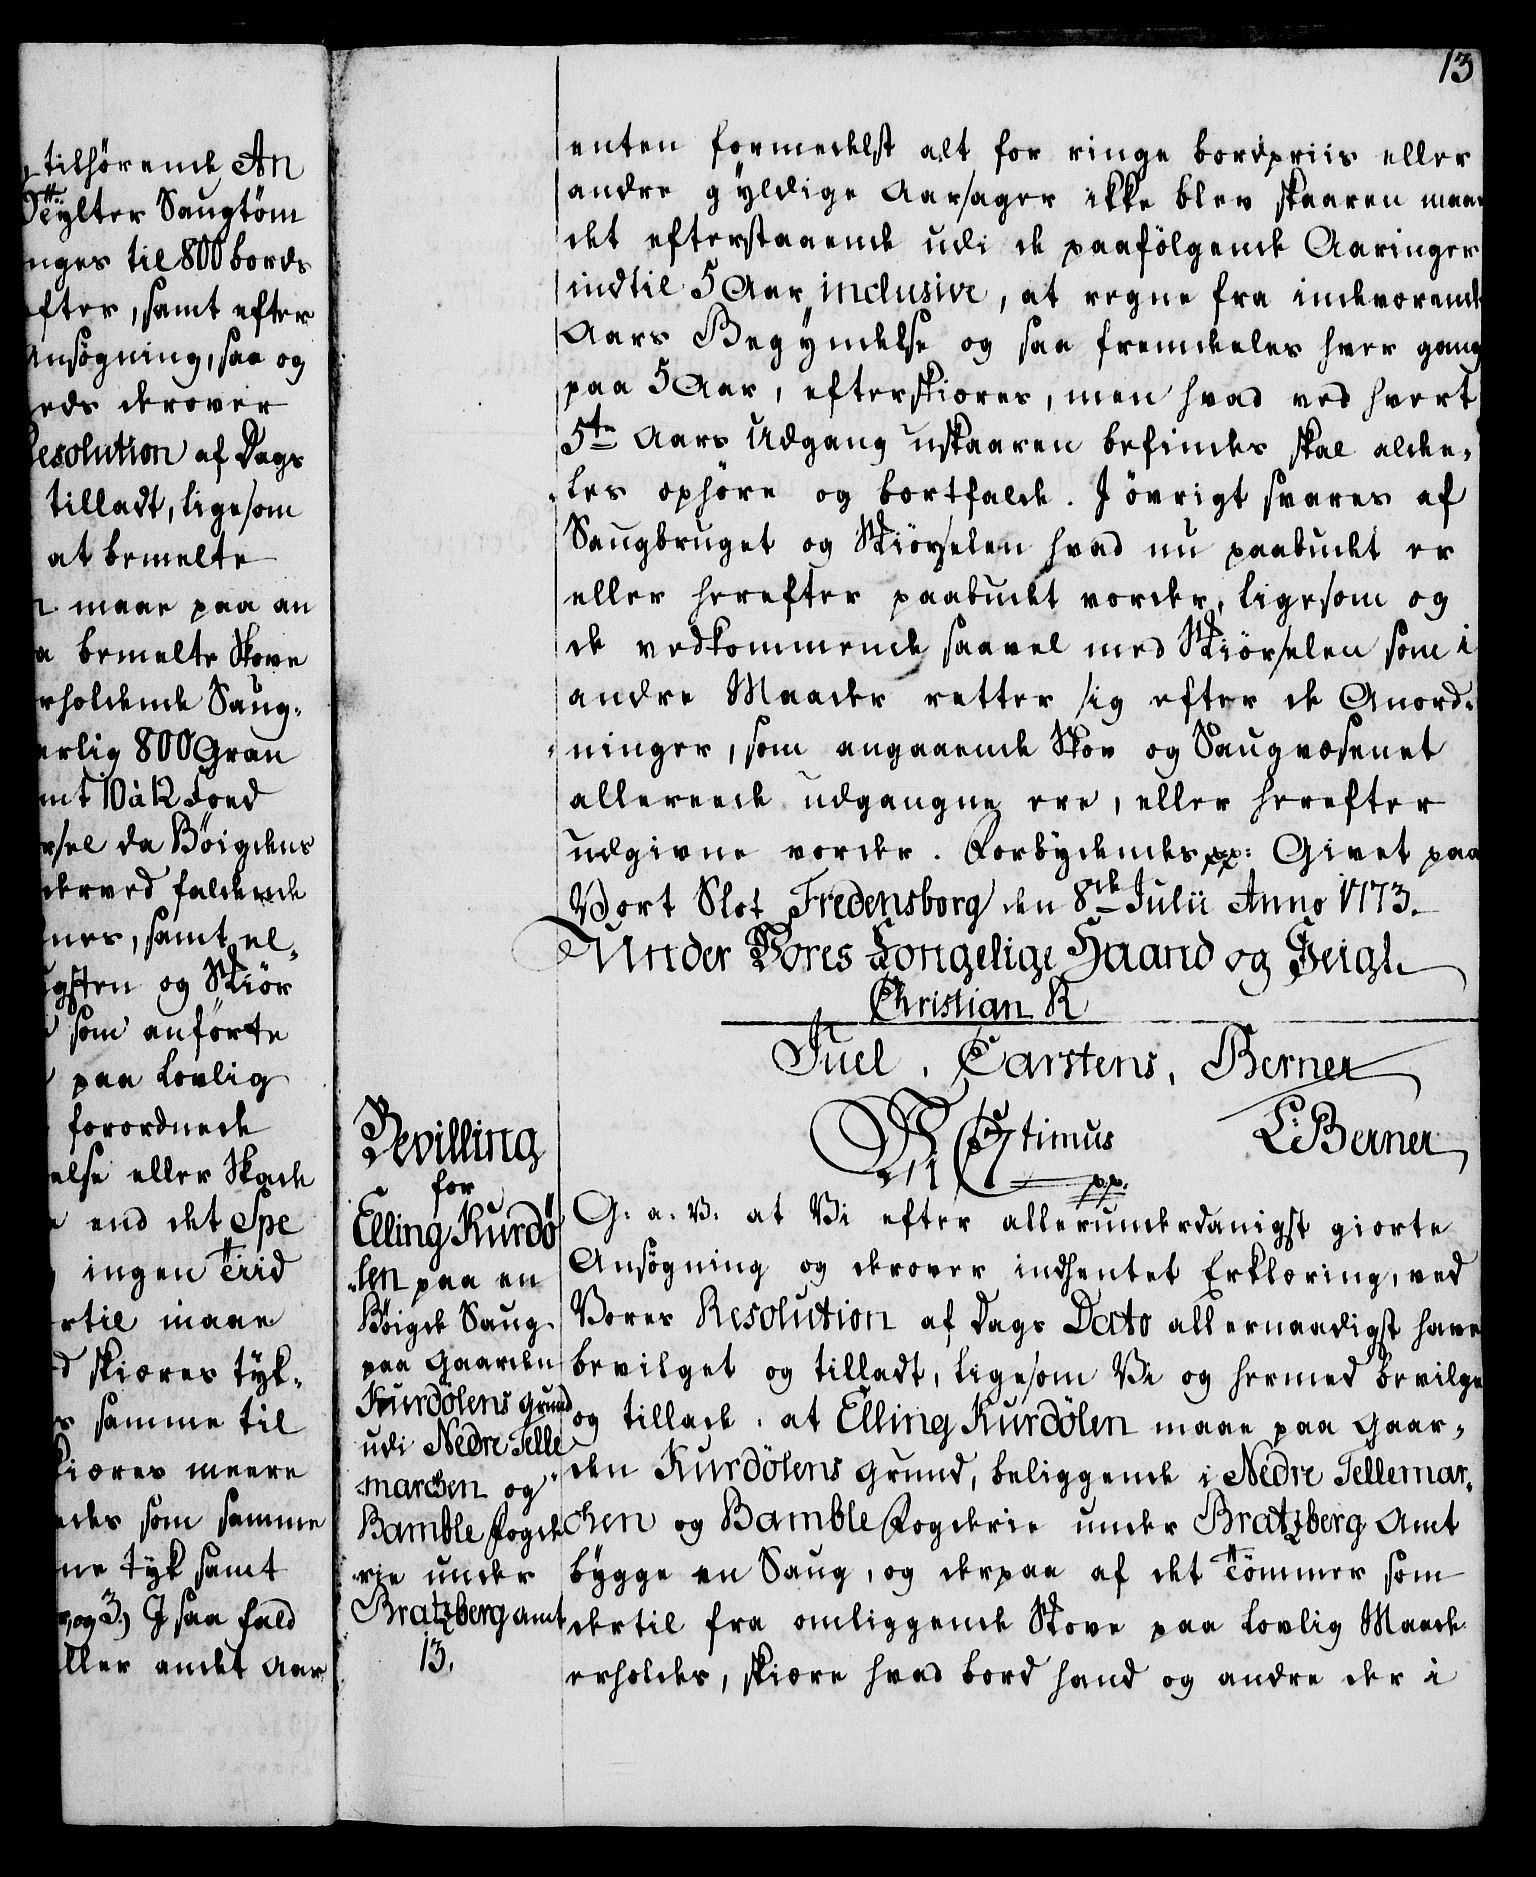 tilhørende An
Tylter Saugtøm
nges til 800 bords
fter, samt efter
Ansøgning, saa og
eds derover
Resolution af Dags
tilladt, ligesom
at bemelte
maae paa an
bemelte Skove
rholdende Saug-
erlig 800 Gran
mt 10 à 12 Foed
rsel da Bøigdens
derved faldende
ner, samt el-
gsten og Skiør
som anførte
paa Lovlig
forordnede
else eller Skade
end det Spe
ingen Tiid
ertil maae
d skiæres tyk-
samme til
skiæres meere
edes som samme
ne tyk samt
og 3.) I saa fald
eller andet Aar
13
enten formedelst alt for ringe bordpriis eller
andre gyldige Aarsager ikke blev skaaren maae
det efterstaaende udi de paafølgende Aaringer
indtil 5 Aar inclusive, at regne fra indeværende
Aars Begyndelse og saa fremdeeles hver gang
paa 5 Aar, efterskiæres, men hvad ved hvert
5te Aars Udgang uskaaren befindes skal aldee-
les ophøre og bortfalde. I øvrigt svares af
Saugbruget og Skiørselen hvad nu paabudet er
eller herefter paabudet vorder, ligesom og
de vedkommende saavel med Skiørselen som i
andre Maader retter sig efter de Anord-
ninger, som angaaende Skov og Saugvæsenet
allereede udgangne ere, eller herefter
udgivne vorder. Forbydendes pp: Givet paa
Vort Slot Fredensborg den 8de Julii Anno 1773.
Under Vores Kongelige Haand og Seigl
Christian R
Juel, Carstens, Berner
L: Berner
Bevilling
for
Elling Kurdø
len paa en
Bøigde Saug
paa Gaarden
Kurdølens Grund
udi Nedre Telle
marchen og
Bamble Fogde
rie under
Bratzberg Amt
13.
Vi C 7timus
pp.
G. a. V. at Vi efter allerunderdanigst giorte
Ansøgning og derover indhentet Erklæring, ved
Vores Resolution af Dags Dato allernaadigst have
bevilget og tilladt, ligesom Vi og hermed bevilge
og tillade, at Elling Kurdølen maae paa Gaar-
den Kurdølens Grund, beliggende i Nedre Tellemar-
chen og Bamble Fogderie under Bratzberg Amt
bygge en Saug, og derpaa af det Tømmer som
dertil fra omliggende Skove paa Lovlig Maade
erholdes, skiære hvad bord hand og andre der i